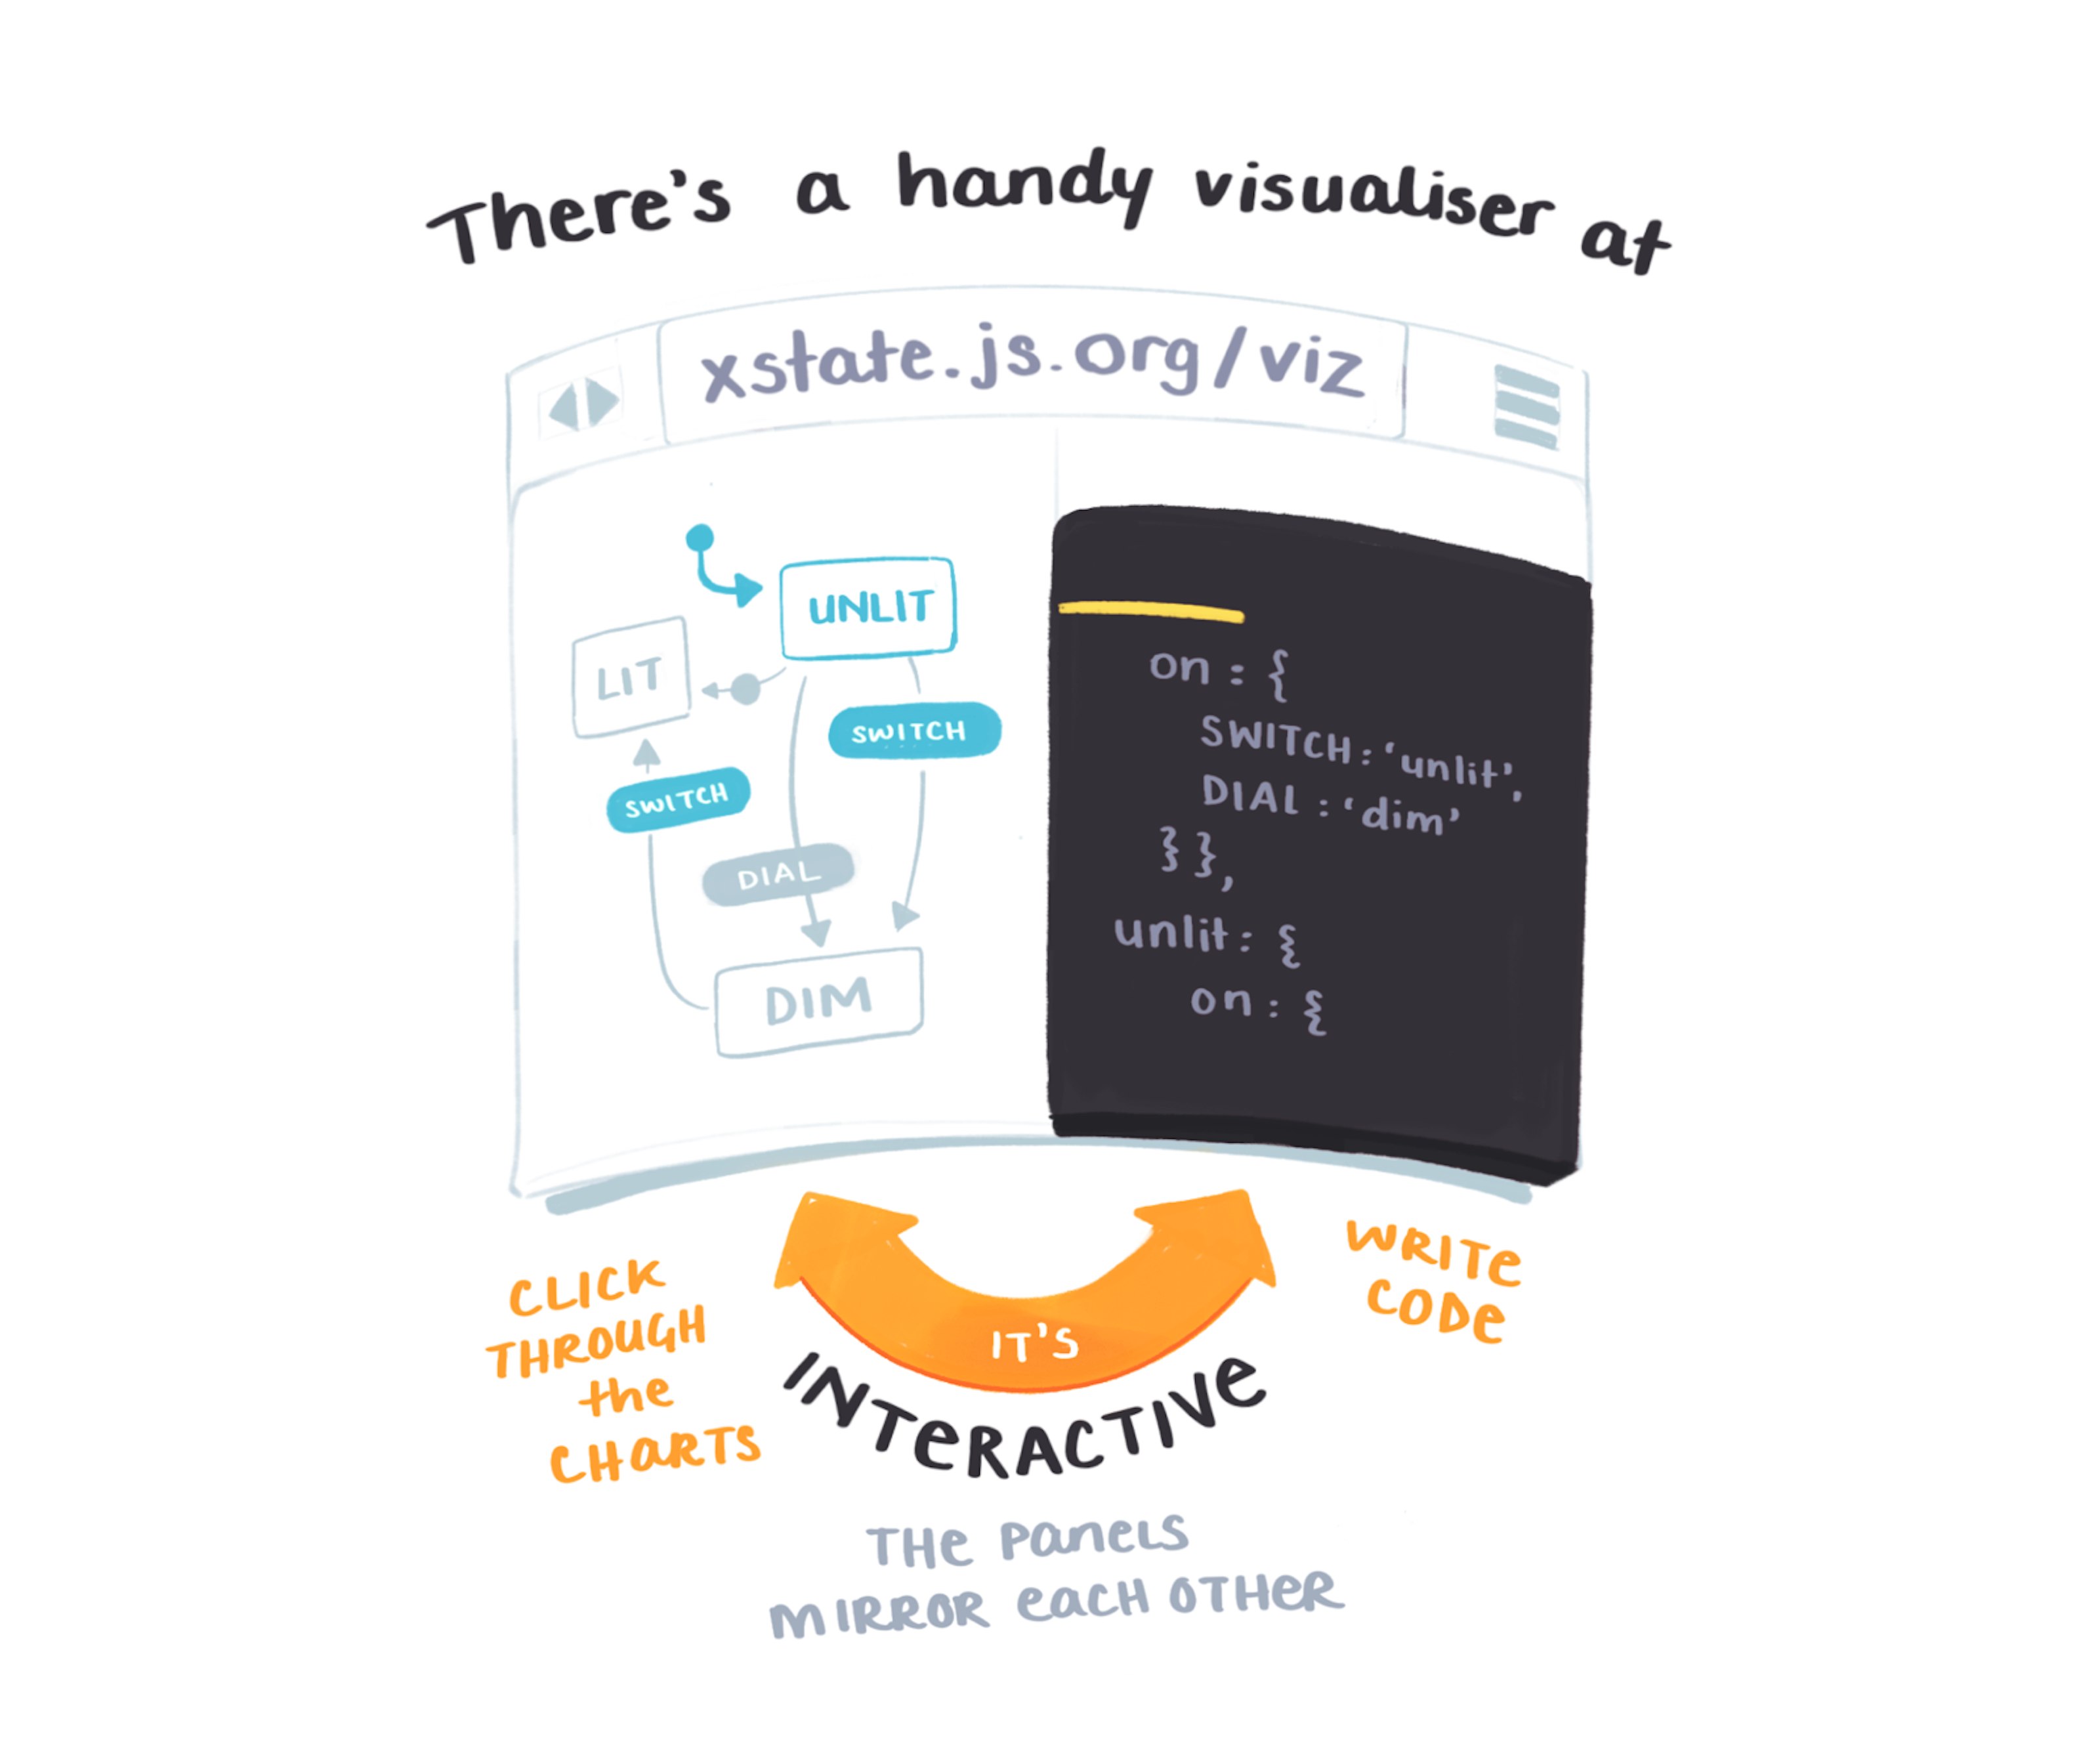 There's a handy visualiser at
xstate.js.org/viz
UNLIT
LIT
SWITCH
SWITCH
DIAL
DIM
on : {
SWITCH : 'unlit',
DIAL : 'dim'
} },
unlit : {
on : {
CLICK
THROUGH
the
CHARTS
IT'S
INTERACTIVE
WRITE
CODE
THE PANELS
MIRROR EACH OTHER